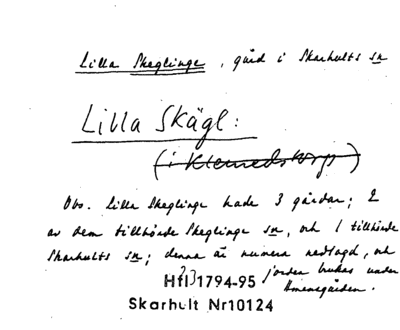 Lilla Skeglinge, gård i Skarhults sn
Lilla Skägl:
(i Klemedstorp)
Obs. Lilla Skeglinge hade 3 gårdar; 2
av dem tillhörde Skeglinge sn, och 1 tillhörde
Skarhults sn; denna är numera nedlagd, och
jorden brukas under
Hfl 1794-95
Skarhult Nr10124